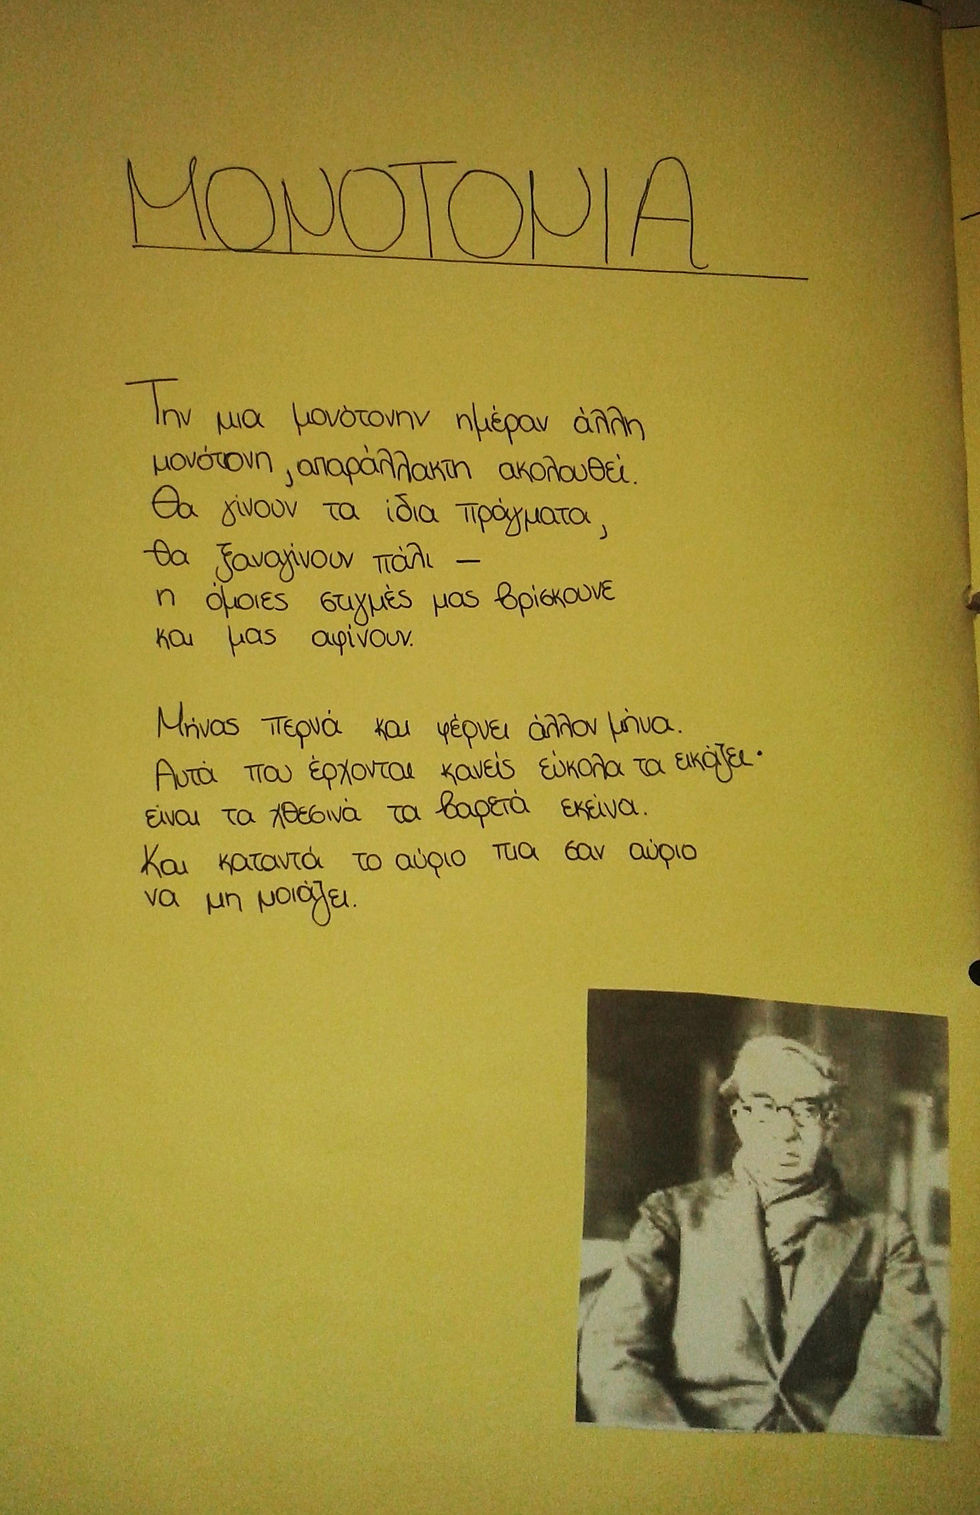 ΜΟΝΟΤΟΝΙΑ
Την μια μονότονην ημέραν άλλη
μονότονη, απαράλλακτη ακολουθεί.
Θα γίνουν τα ίδια πράγματα,
θα ξαναγίνουν πάλι —
η όμοιες στιγμές μας βρίσκουνε
και μας αφίνουν.
Μήνας περνά και φέρνει άλλον μήνα.
Αυτά που έρχονται κανείς εύκολα τα εικάζει·
είναι τα χθεσινά τα βαρετά εκείνα.
Και καταντά το αύριο πια σαν αύριο
να μη μοιάζει.